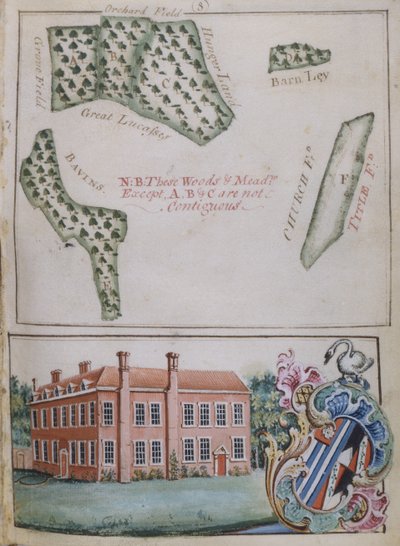 8
Orchard Field
Grove Field
A
B
C
Hunger Land
Great Lucasses
D
Barn Ley
BAVINS
E
N:B. These Woods & Mead.s
Except, A, B & C are not
Contiguous.
CHURCH F.D
F
TITLE F.D